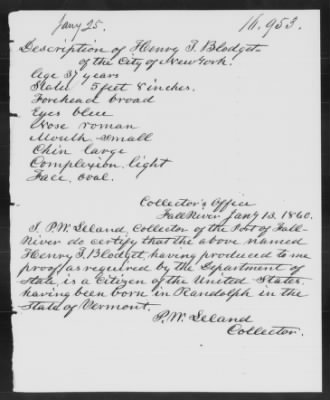 Jany 25.
16.953.
Description of Henry T. Blodget
of the City of New York.
Age 37 years
State 5 feet 8 inches.
Forehead broad
Eyes blue
Nose roman
Mouth small
Chin large
Complexion light
Face oval.
Collector's Office
Fall River Jany 13. 1860.
I, P.W. Leland, Collector of the Port of Fall
River do certify that the above named
Henry T. Blodgett having produced to me
proof as required by the Department of
State, is a Citizen of the United States,
having been born in Randolph in the
State of Vermont.
P.W. Leland
Collector.